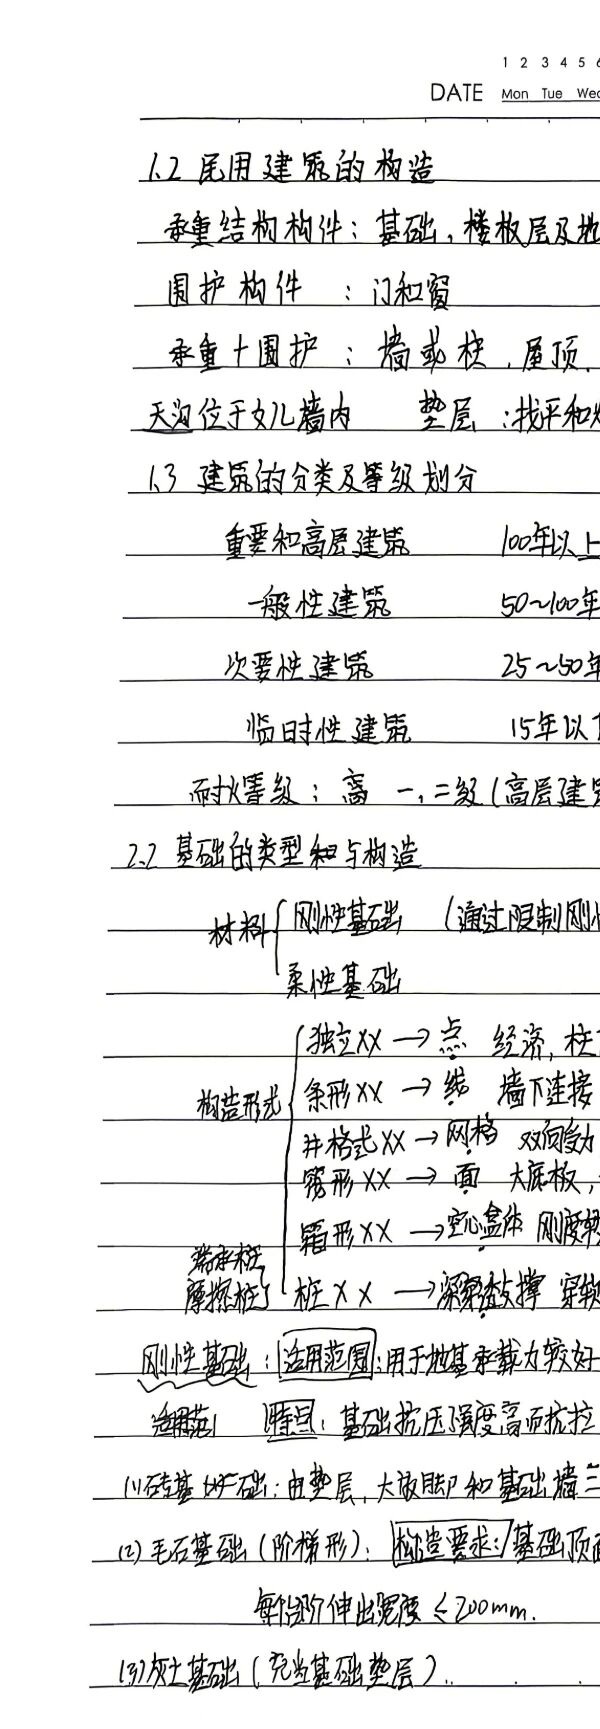 1 2 3 4 5 6
DATE Mon Tue Wed
1.2 民用建筑的构造
承重结构构件：基础，楼板层及地
围护构件 ：门和窗
承重+围护 ：墙或柱、屋顶、
天沟位于女儿墙内 垫层：找平和
1.3 建筑的分类及等级划分
重要和高层建筑 100年以上
一般性建筑 50~100年
次要性建筑 25~50年
临时性建筑 15年以下
耐火等级：高 一、二级(高层建筑
2.2 基础的类型与构造
材料 刚性基础 (通过限制刚性
柔性基础
独立XX → 点 经济，柱下
构造形式 条形XX → 线 墙下连接
井格式XX → 网格 双向受力
筏形XX → 面 大底板，
箱形XX → 空心盒体 刚度
端承桩
摩擦桩 桩XX → 深 支撑 穿软
刚性基础：适用范围：用于地基承载力较好
特点：基础抗压强度高而抗拉
(1)砖基础：由垫层、大放脚和基础墙三
(2)毛石基础(阶梯形)：构造要求：基础顶面
每台阶伸出宽度≤200mm.
(3)灰土基础(充当基础垫层).